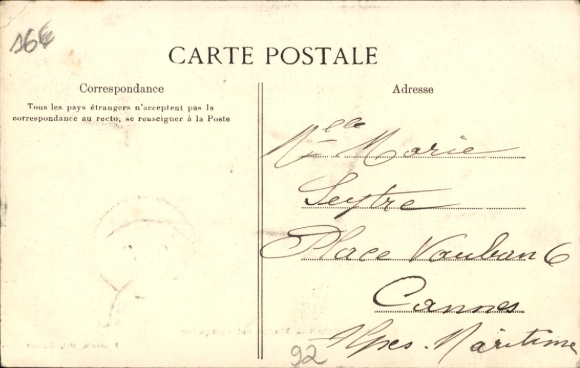 16€
CARTE POSTALE
Correspondance
Tous les pays étrangers n'acceptent pas la
correspondance au recto, se renseigner à la Poste
Adresse
Melle Marie
Seytre
Place Vauban 6
Cannes
Alpes-Maritime
92